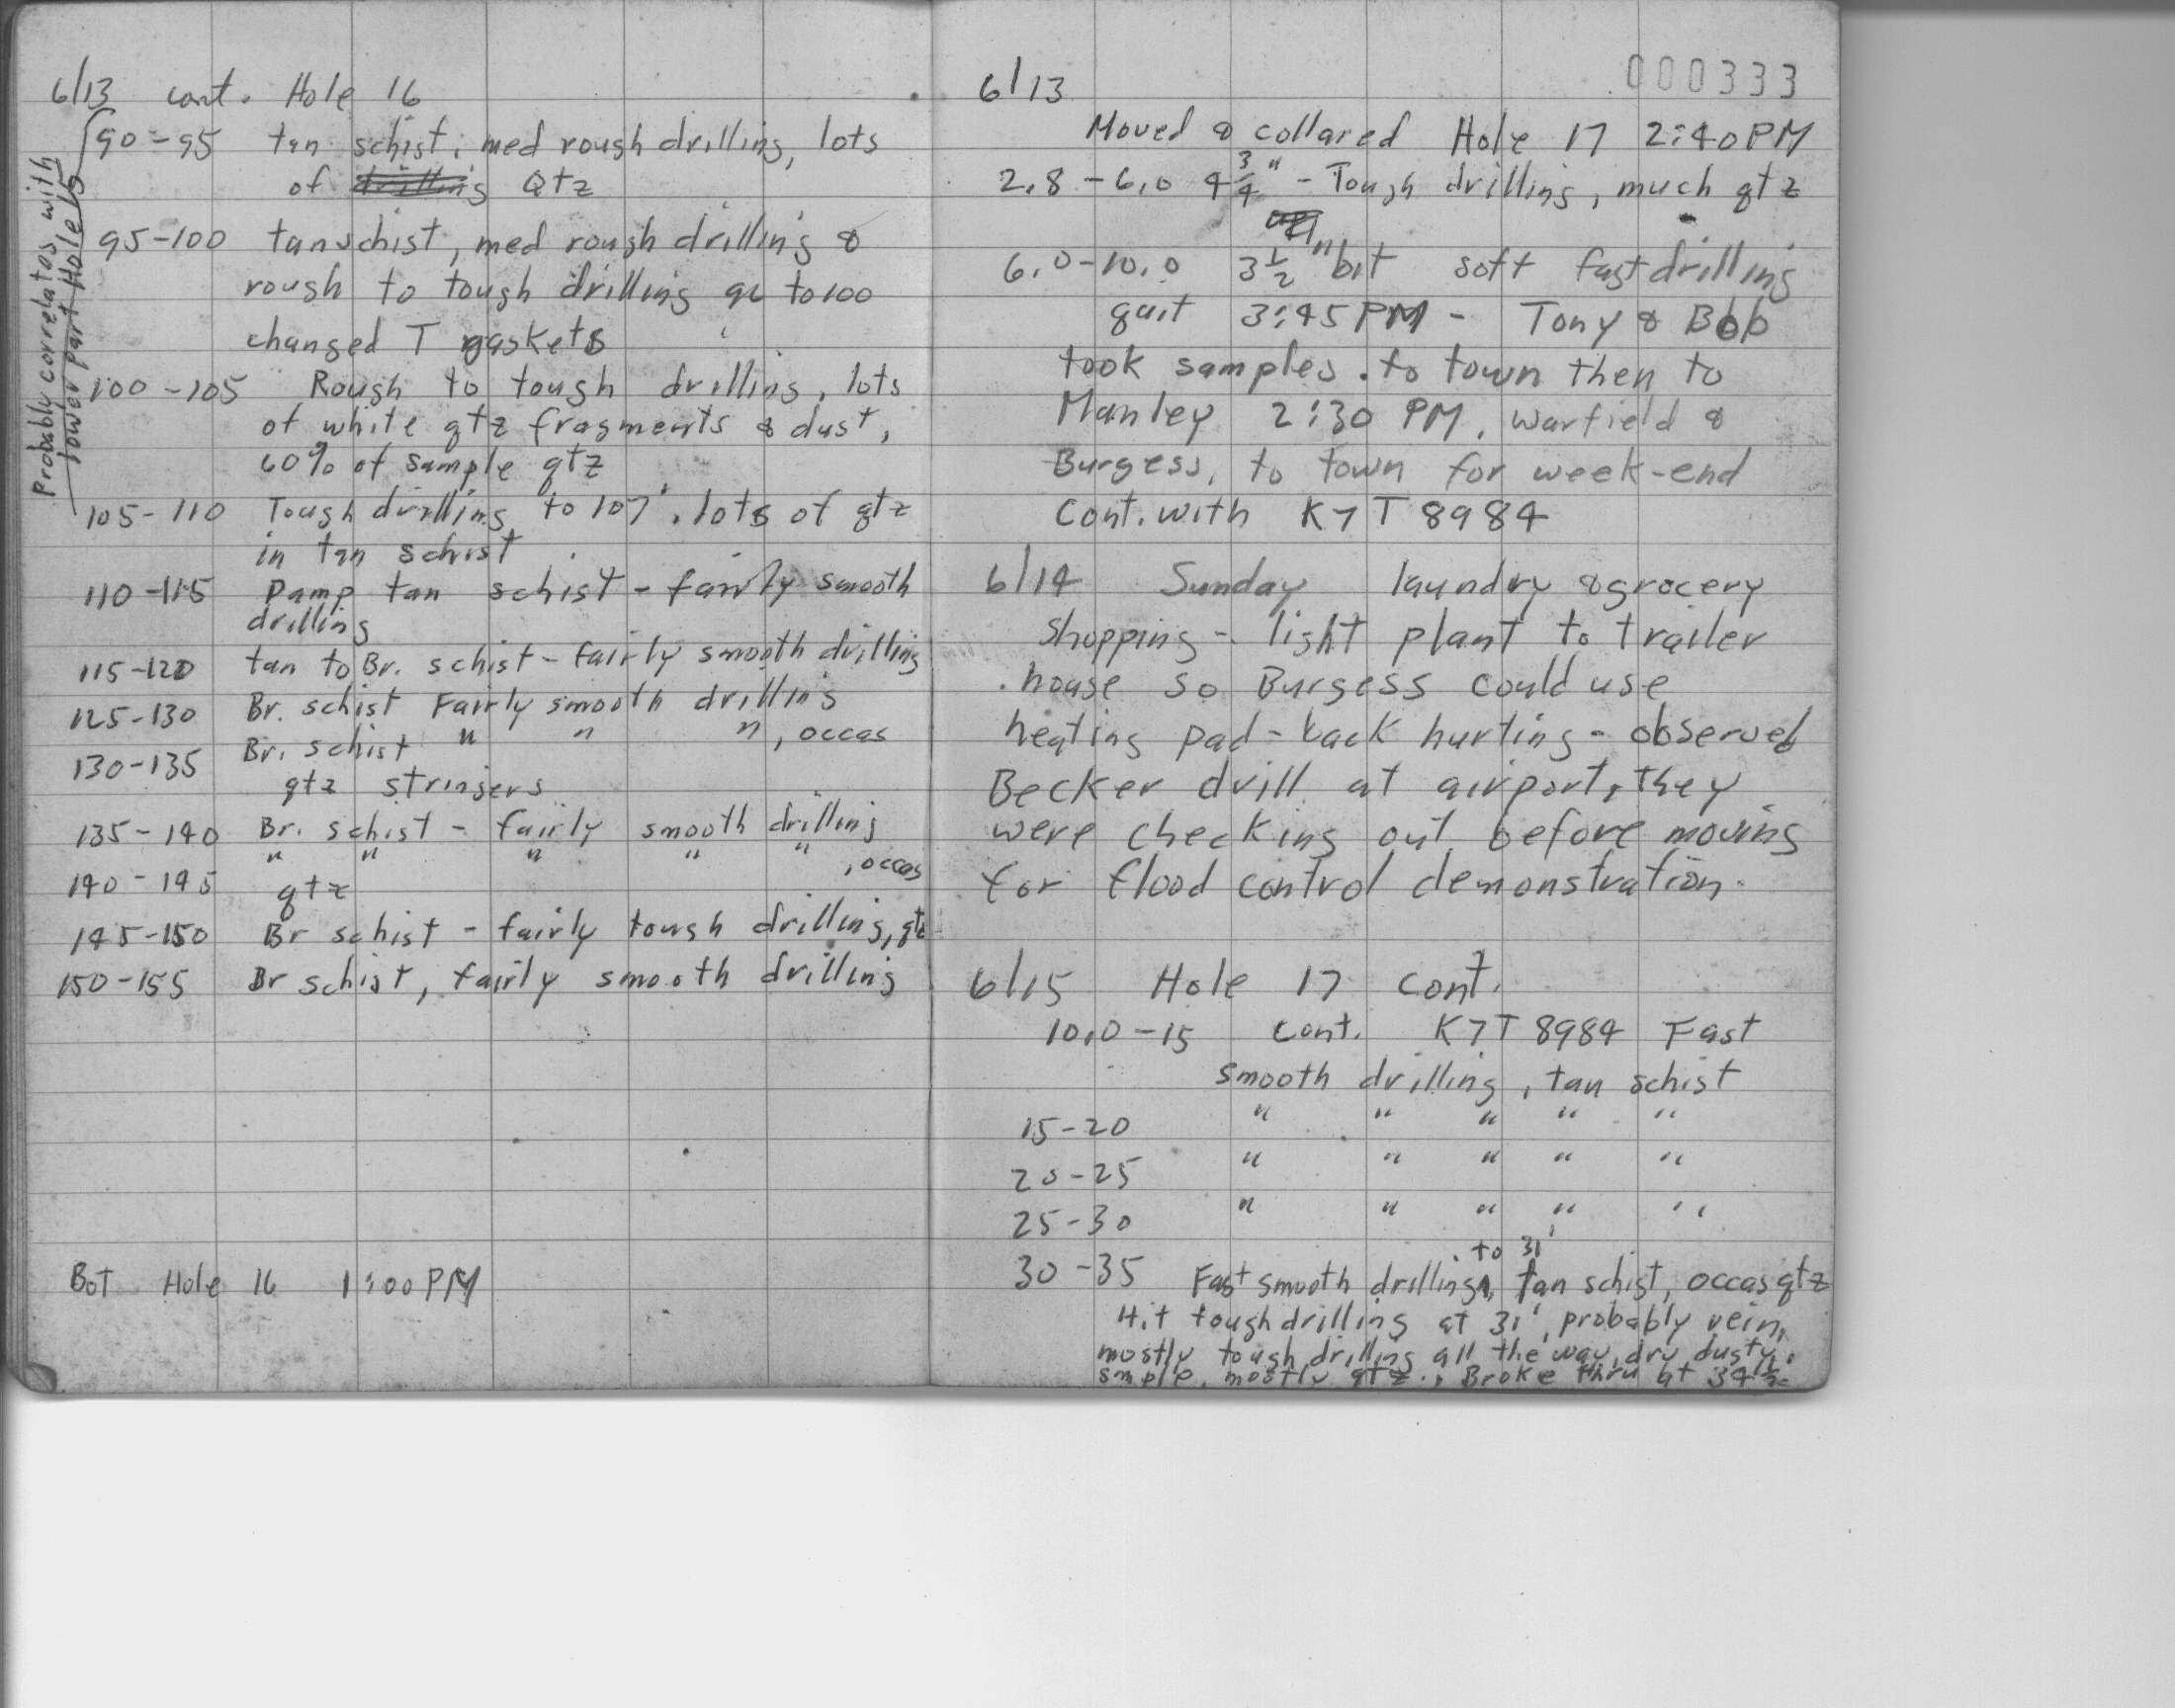 6/13 cont. Hole 16
Probably correlates with
lower part Hole 15
90-95 tan schist, med rough drilling, lots
of drilling Qtz
95-100 tan schist, med rough drilling &
rough to tough drilling to 100
changed T gaskets
100-105 Rough to tough drilling, lots
of white qtz fragments & dust,
60% of sample qtz
105-110 Tough drilling to 107', lots of qtz
in tan schist
110-115 Damp tan schist - fairly smooth
drilling
115-120 tan to Br. schist - fairly smooth drilling
125-130 Br. schist Fairly smooth drilling
130-135 Br. schist " " ", occas
qtz stringers
135-140 Br. schist - fairly smooth drilling
140-145 " " " " ", occas
qtz
145-150 Br schist - fairly tough drilling, qtz
150-155 Br schist, fairly smooth drilling
Bot Hole 16 1:00 PM
000333
6/13
Moved & collared Hole 17 2:40 PM
2.8-6.0 4 3/4" - Tough drilling, much qtz
6.0-10.0 3 1/2" bit soft fast drilling
quit 3:45 PM - Tony & Bob
took samples to town then to
Manley 2:30 PM, Warfield &
Burgess, to town for week-end
Cont. with K7T8984
6/14 Sunday laundry & grocery
shopping - light plant to trailer
house so Burgess could use
heating pad - back hurting - observed
Becker drill at airport, they
were checking out before moving
for flood control demonstration.
6/15 Hole 17 cont.
10.0-15 cont. K7T8984 Fast
smooth drilling, tan schist
15-20 " " " " "
20-25 " " " " "
25-30 " " " " "
to 31'
30-35 Fast smooth drilling, tan schist, occas qtz
Hit tough drilling at 31', probably vein,
mostly tough drilling all the way, dry dusty
smple, mostly qtz., Broke thru at 34 1/2